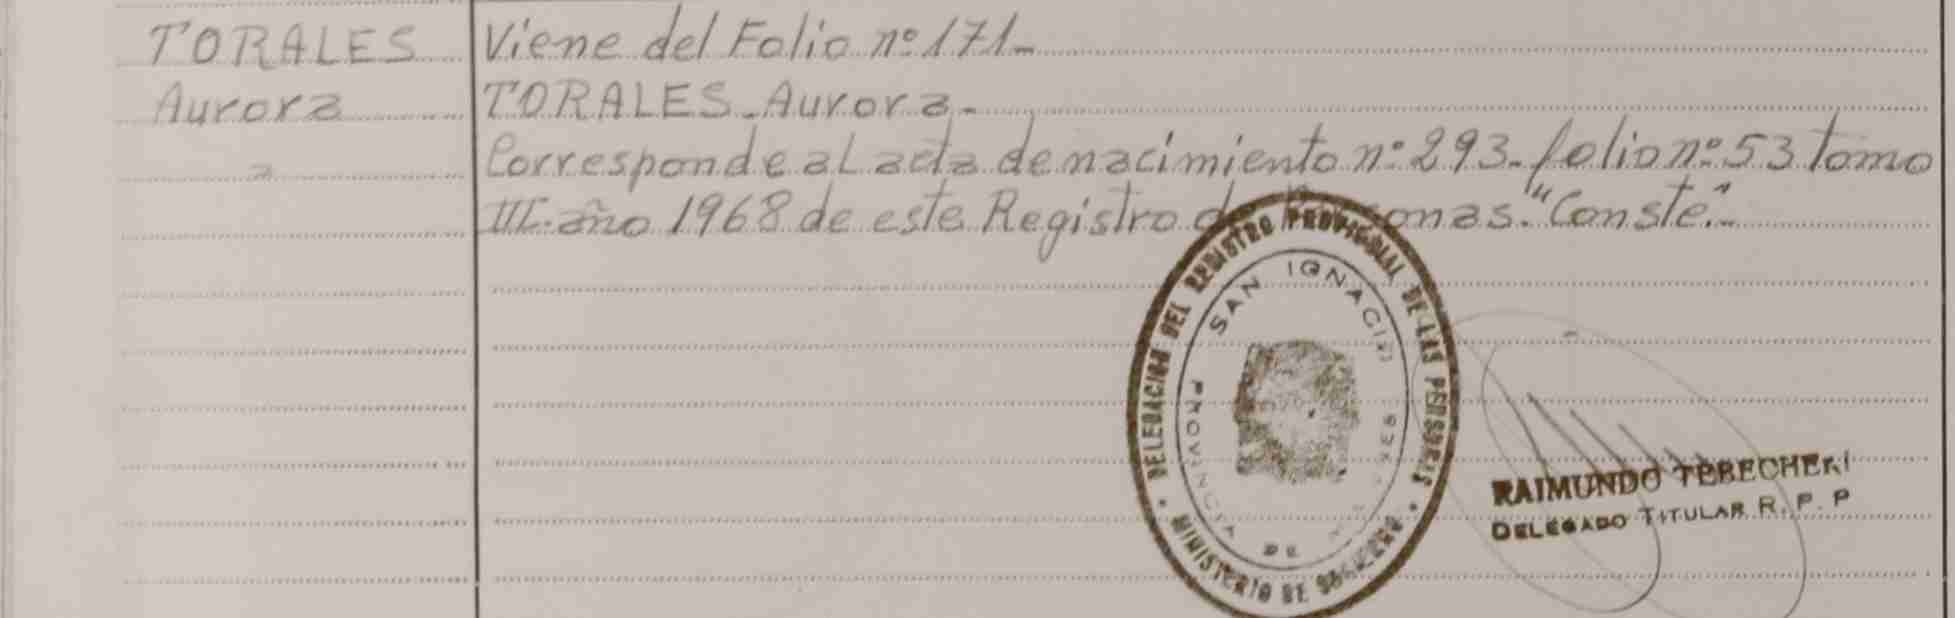 TORALES
Aurora
Viene del Folio nº 171-
TORALES - Aurora -
Corresponde al acta de nacimiento nº 293 - folio nº 53 tomo
III - año 1968 de este Registro de Personas. "Conste."
DELEGACION DEL REGISTRO PROVINCIAL DE LAS PERSONAS
SAN IGNACIO
PROVINCIA DE
MINISTERIO DE GOBIERNO
RAIMUNDO
DELEGADO TITULAR R. P. P